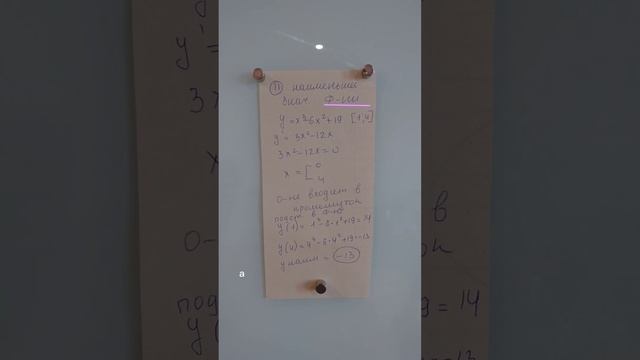 11 наименьш
знач Ф-ии
y = x³-6x²+19 [1;4]
y' = 3x²-12x
3x²-12x=0
x = [ 0
4
0-не входит в
промежуток
подст в ф-ю
y(1) = 1³-6·1²+19=14
y(4)=4³-6·4²+19=-13
y наим = -13
a